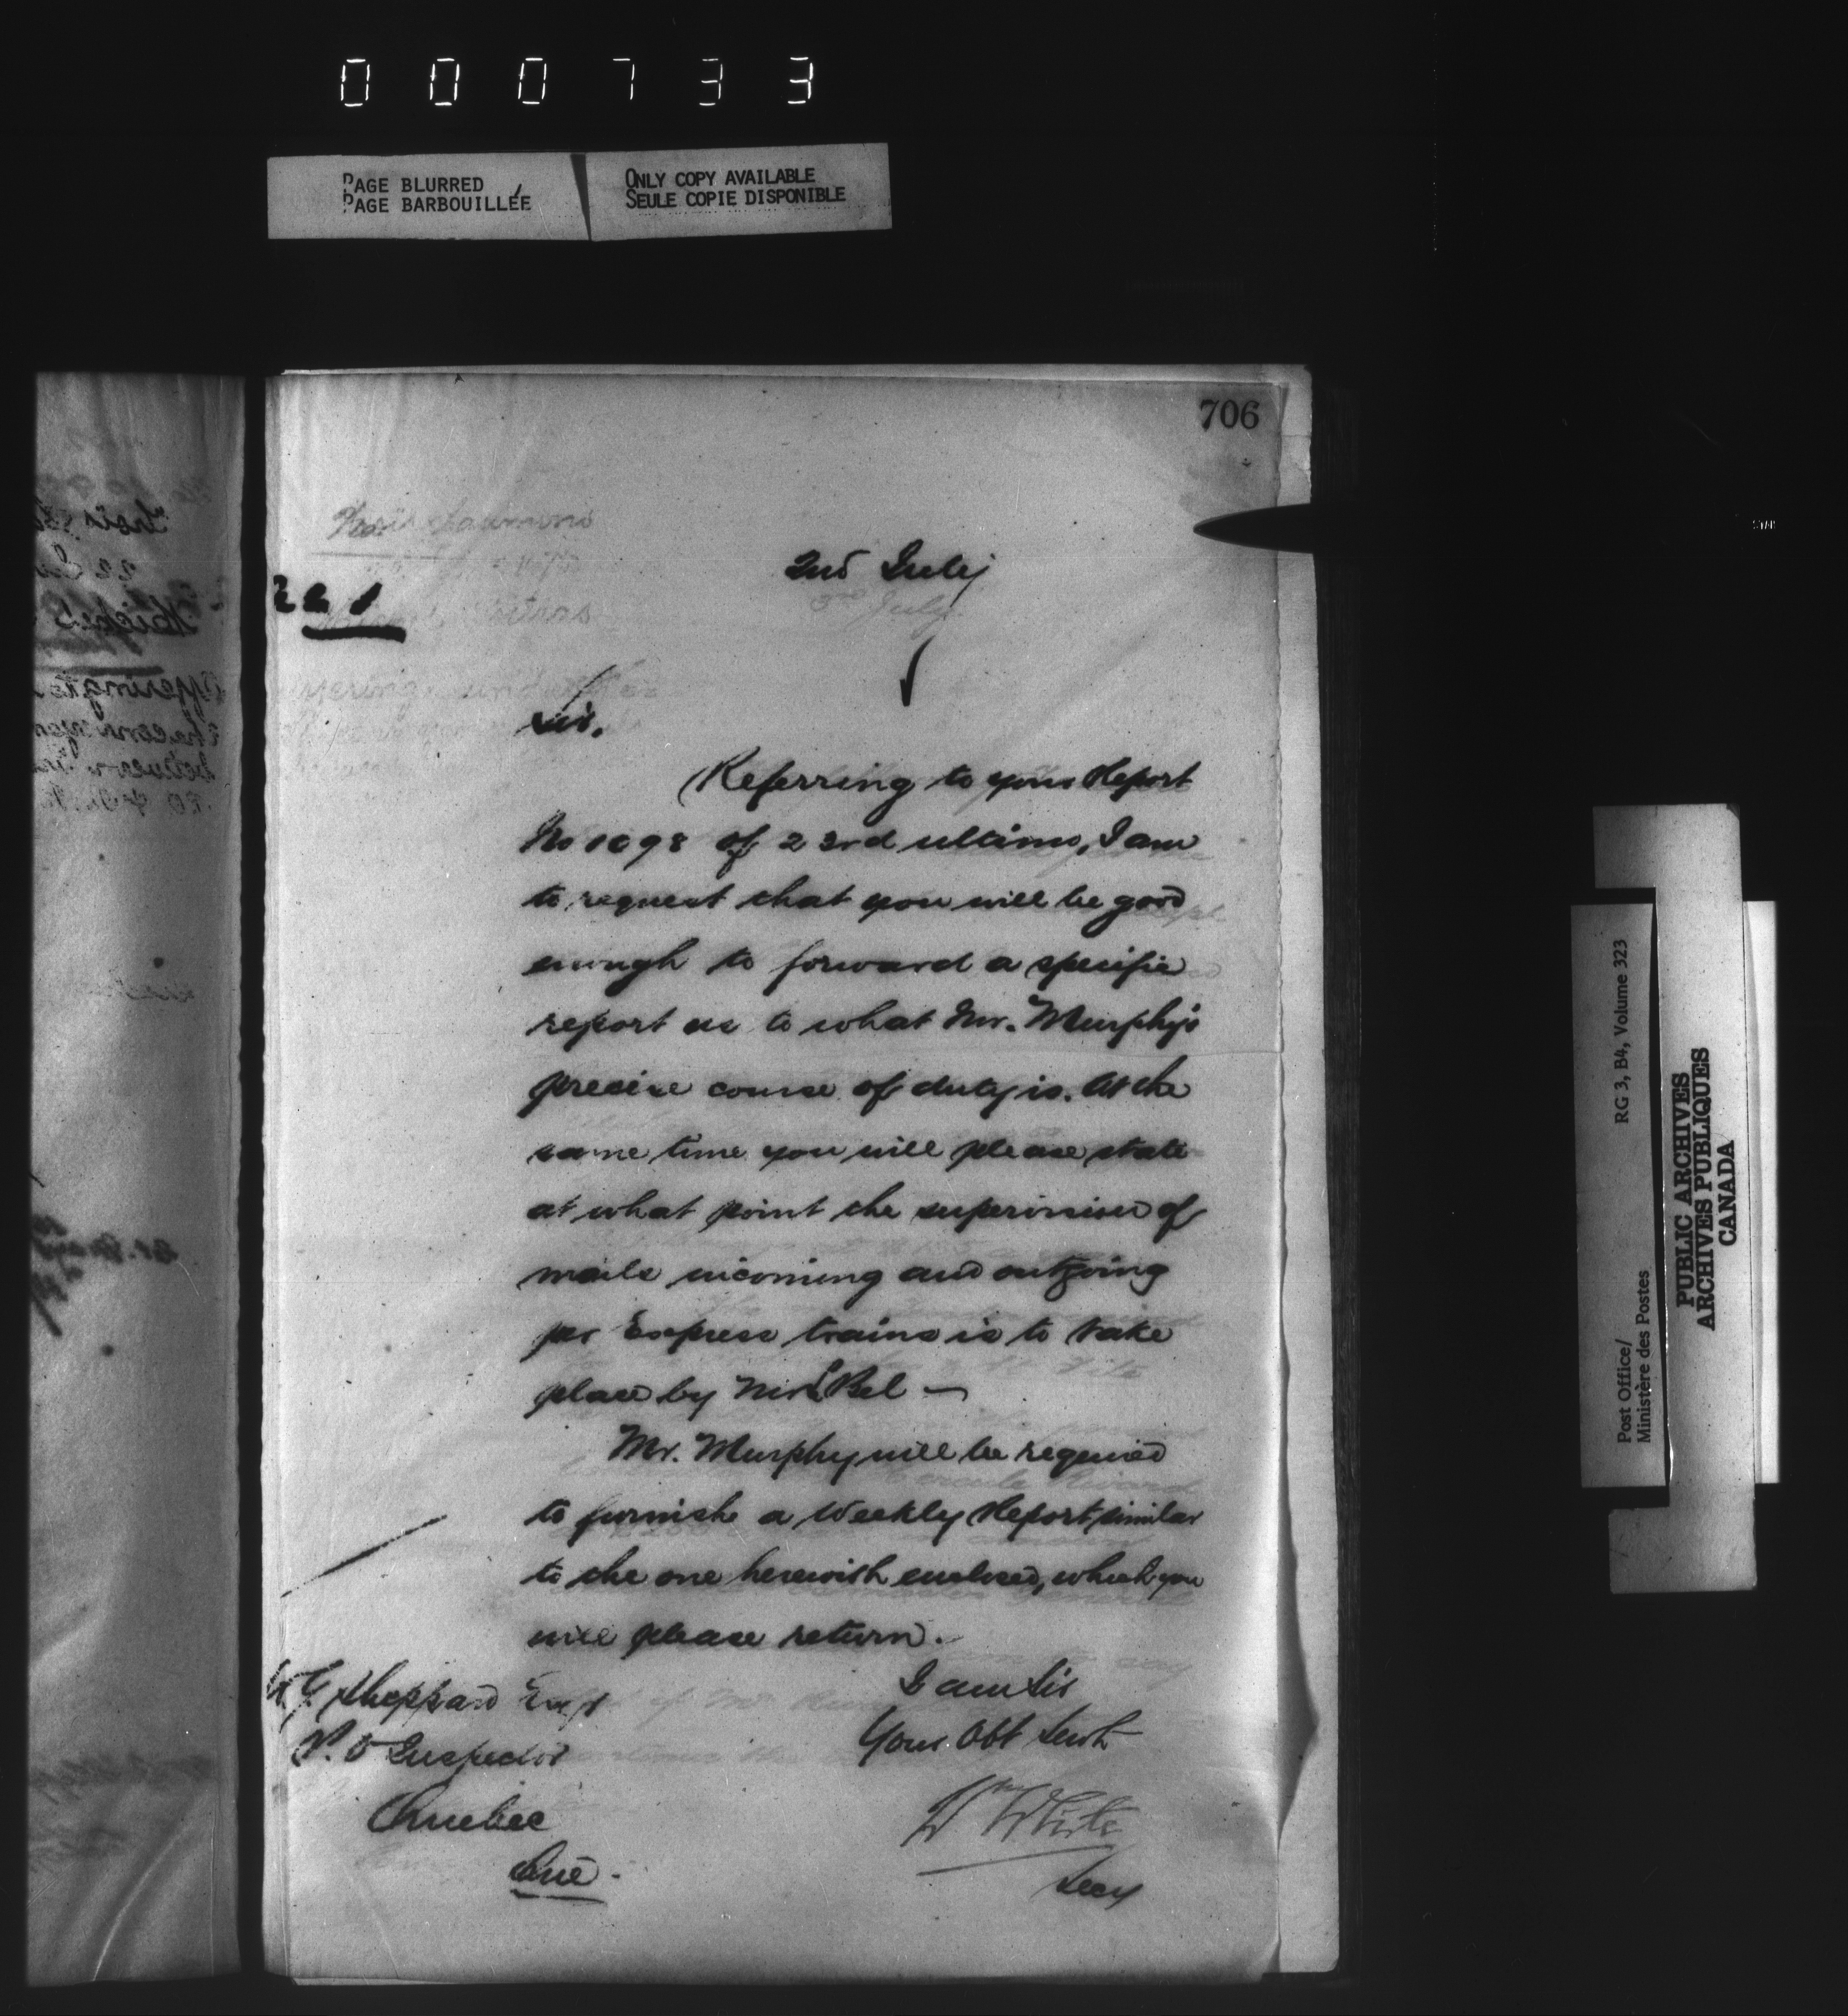 000733
PAGE BLURRED
PAGE BARBOUILLÉE
ONLY COPY AVAILABLE
SEULE COPIE DISPONIBLE
706
2nd July
3rd July
221
Sir,
Referring to your Report
No 1098 of 23rd ultimo, I am
to request that you will be good
enough to forward a specific
report as to what Mr. Murphy's
precise course of duty is. At the
same time you will please state
at what point the supervision of
mails incoming and outgoing
per Express trains is to take
place by Mr
Mr. Murphy will be required
to furnish a Weekly Report similar
to the one herewith enclosed, which you
will please return.
I am Sir
Your Obt Servt
Wm White
Secy
W. G. Sheppard Esq
P. O Inspector
Quebec
Que.
RG 3, B4, Volume 323
Post Office/
Ministère des Postes
PUBLIC ARCHIVES
ARCHIVES PUBLIQUES
CANADA